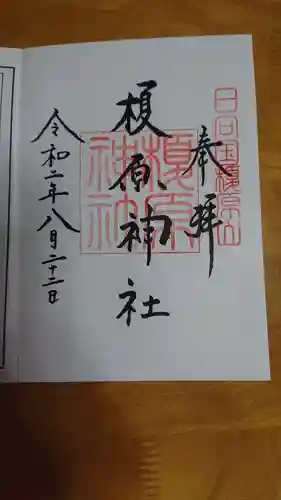 奉拝
日向国榎原山
榎原神社
榎原
神社
令和二年八月二十二日